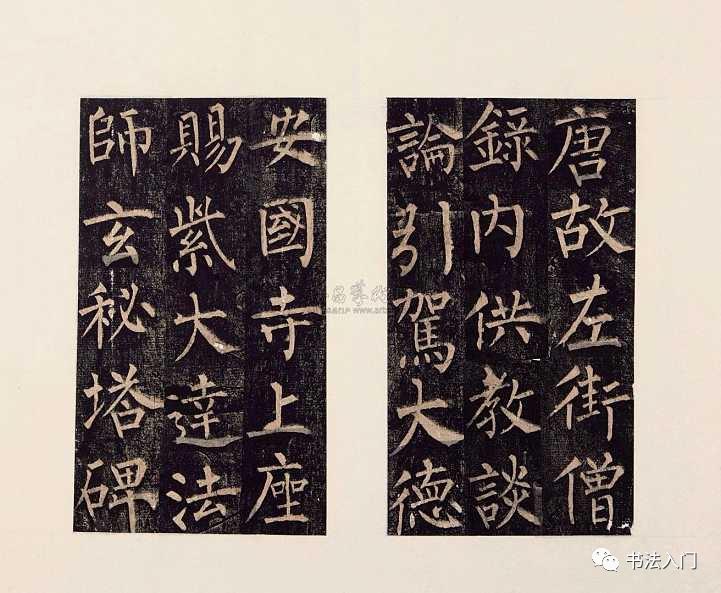 唐故左街僧
錄内供教談
論引駕大德
安國寺上座
賜紫大達法
師玄秘塔碑
书法入门